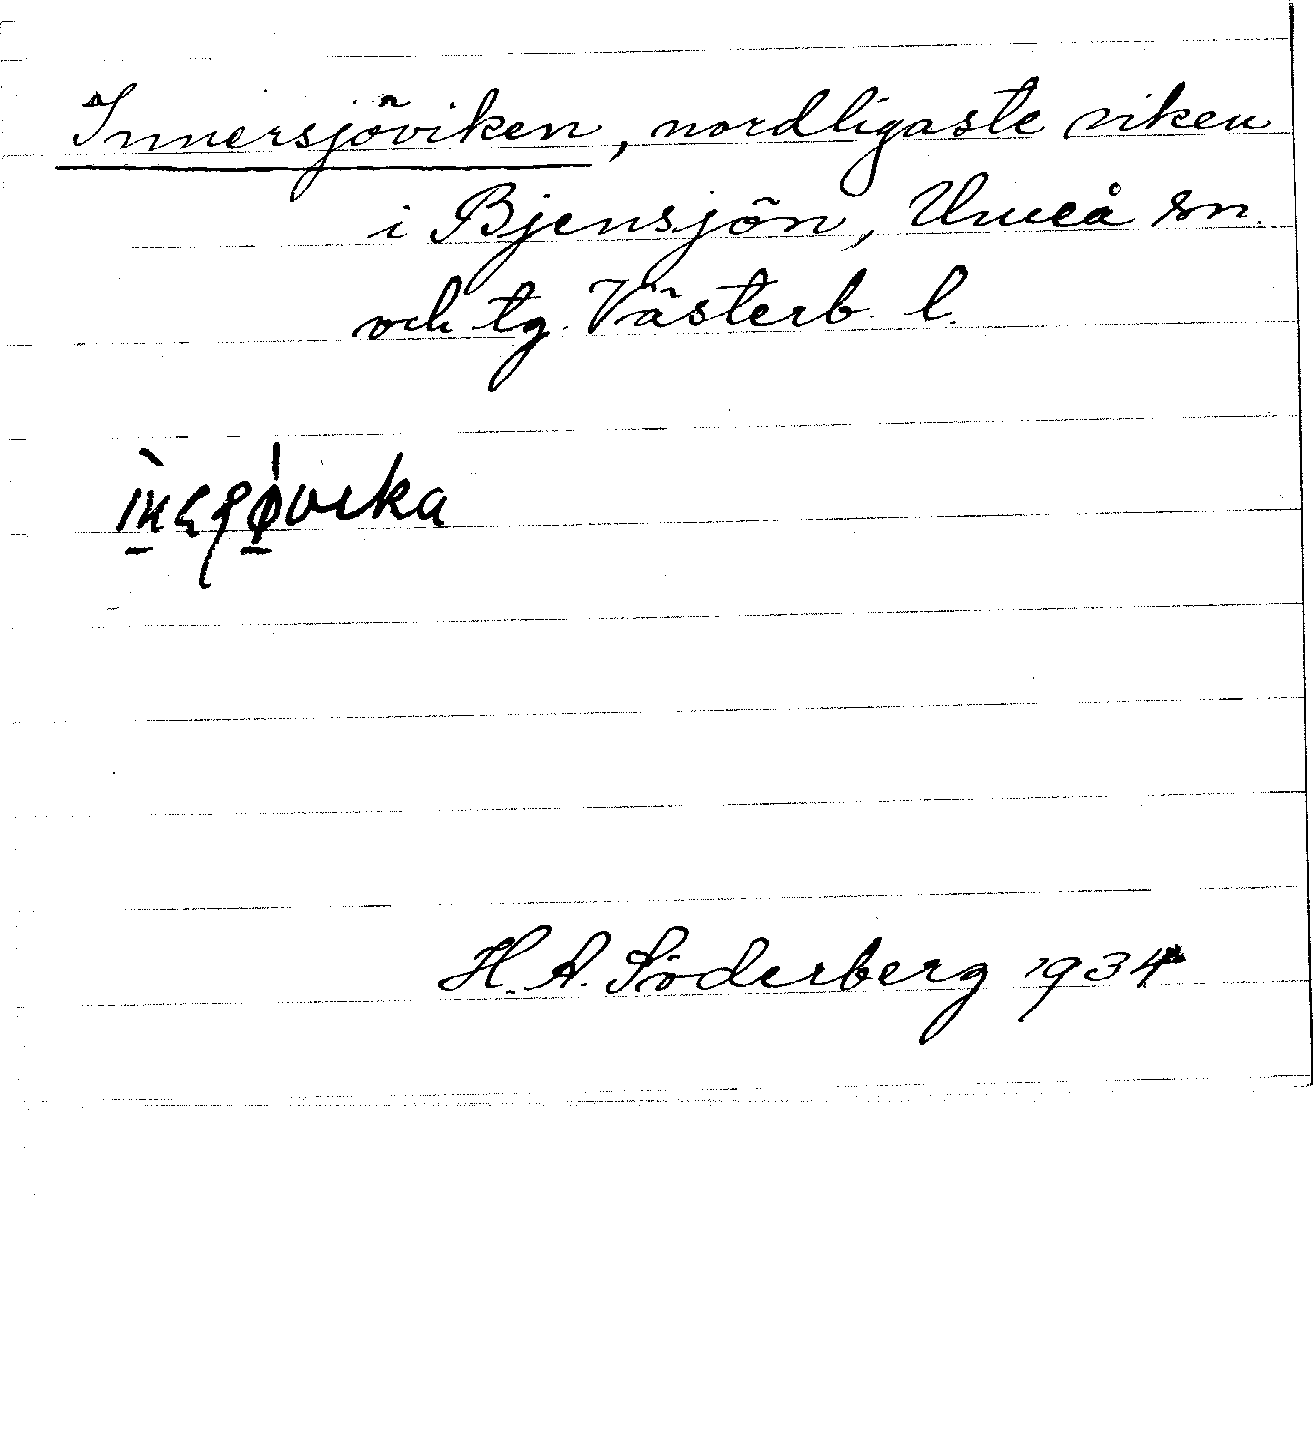 Innersjöviken, nordligaste viken
i Bjensjön, Umeå sn.
och tg. Västerb. l.
H. A. Söderberg 1934